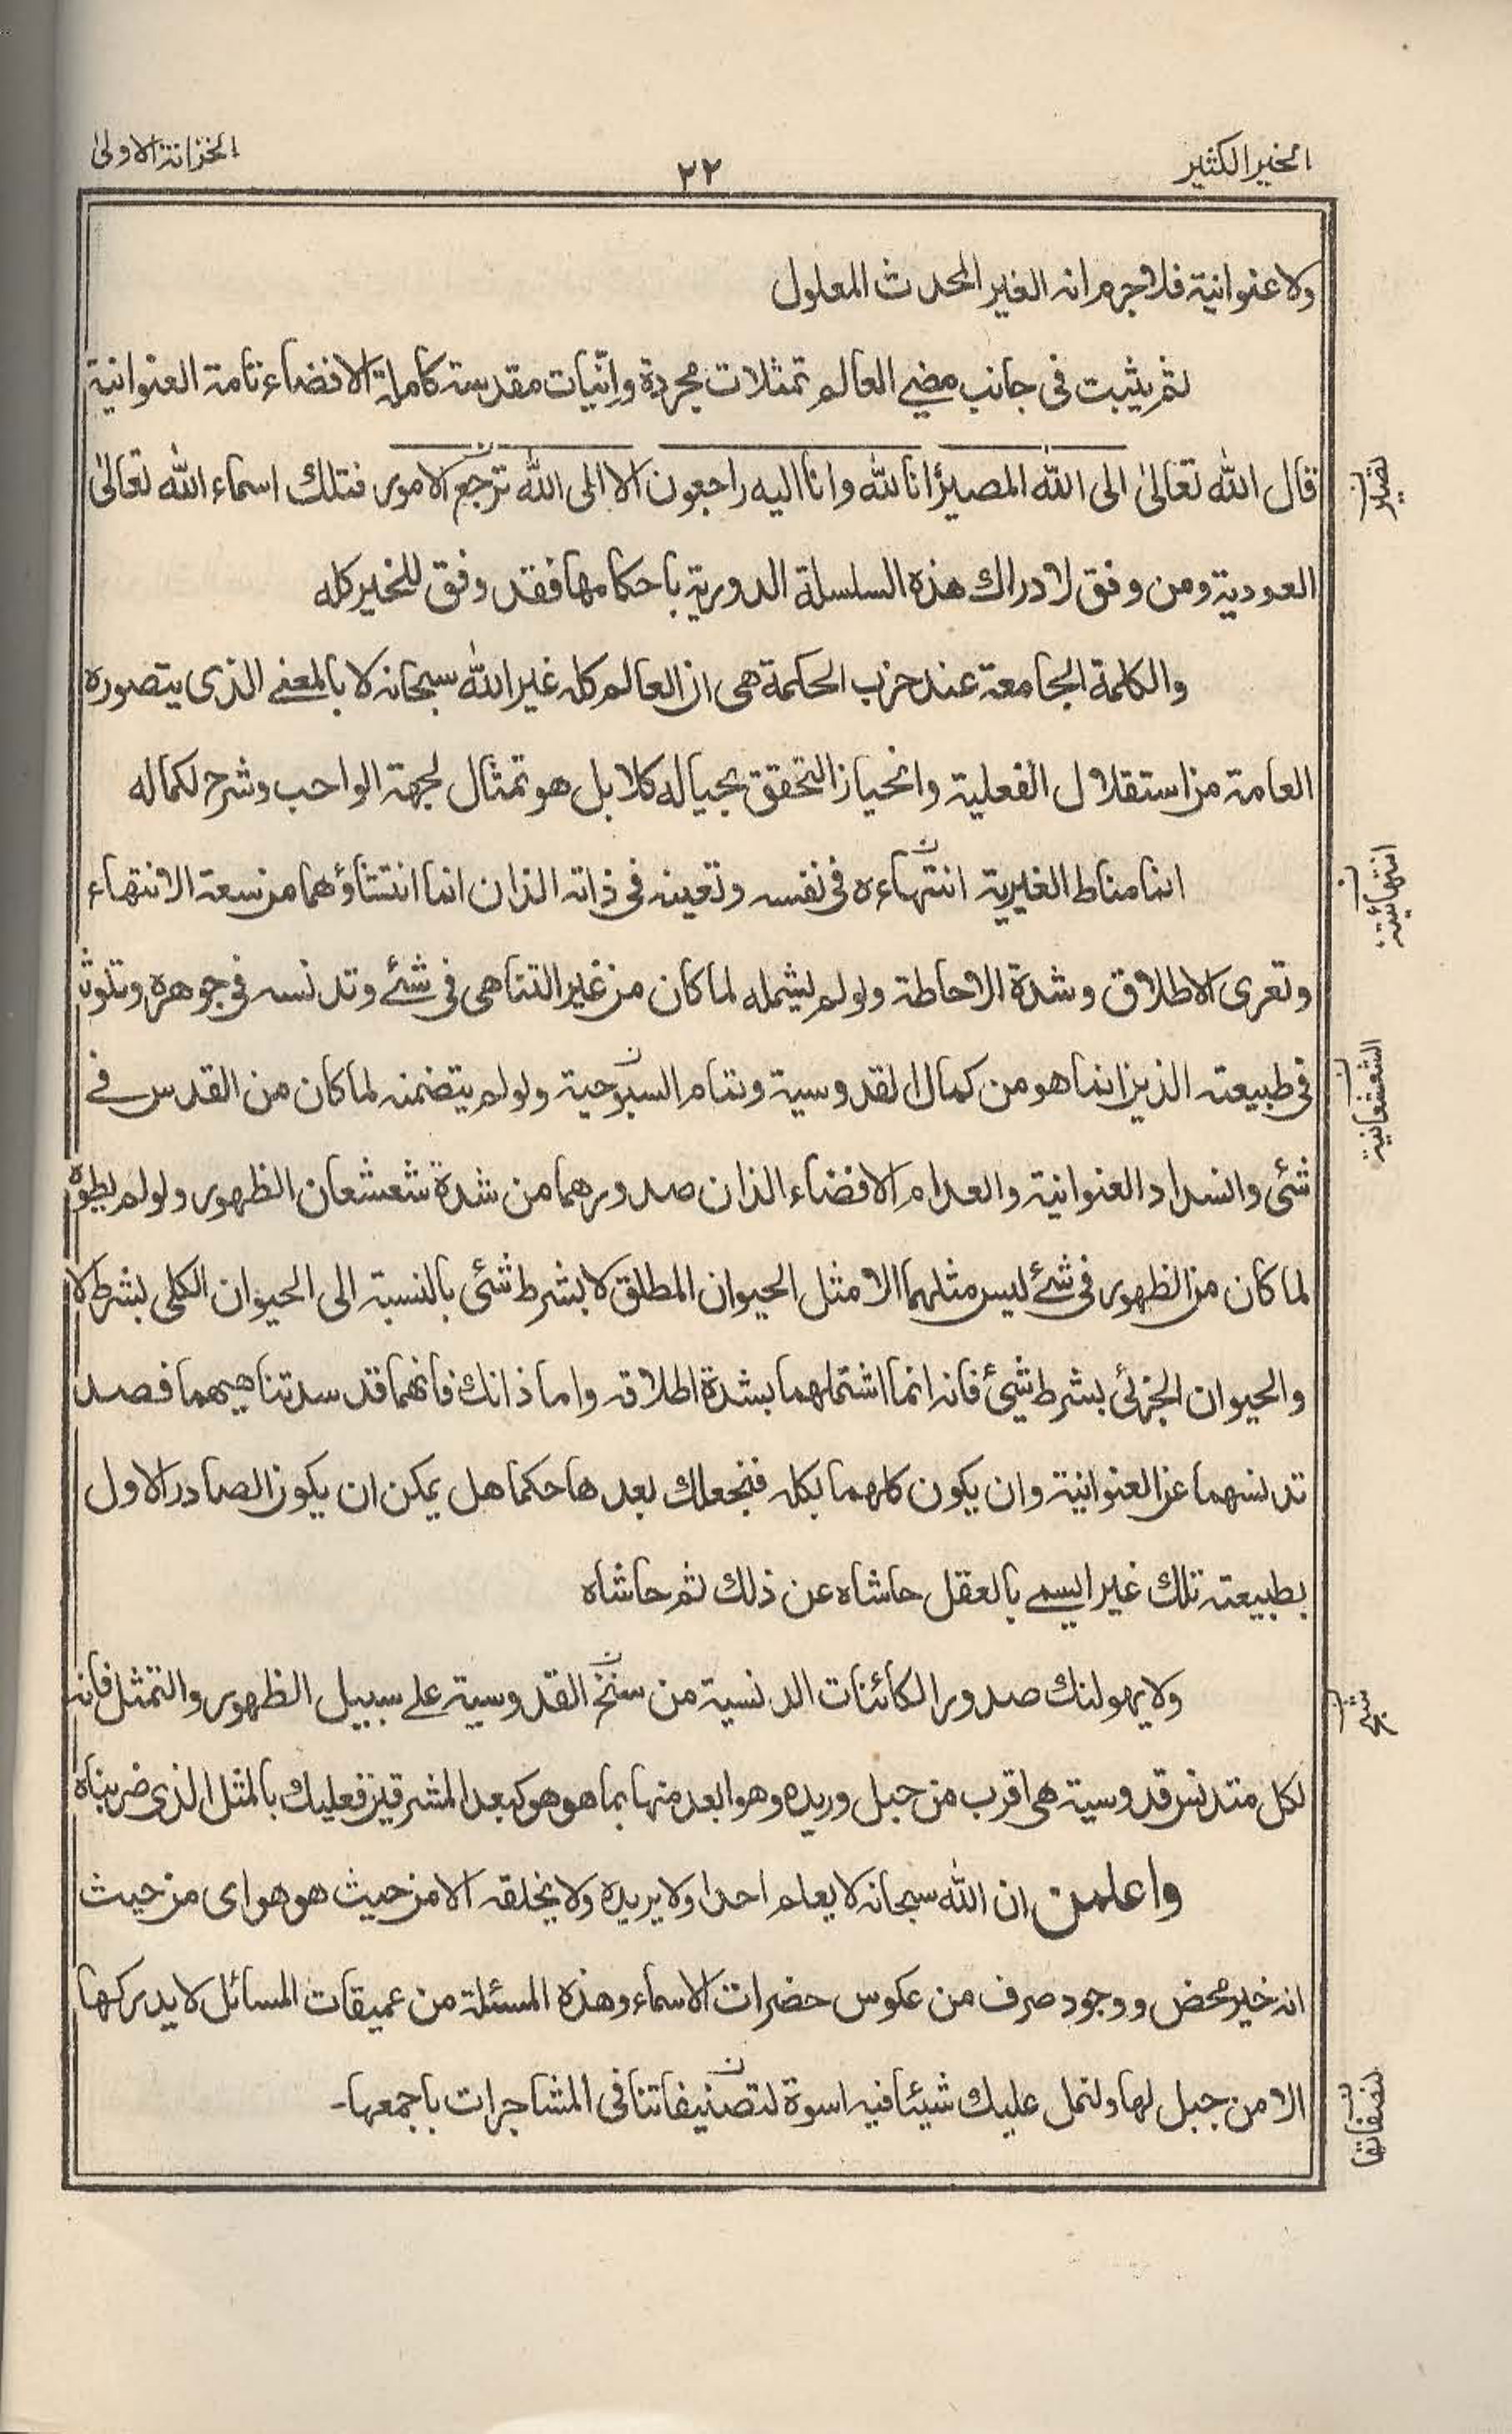 الخير الكثير
٢٢
الخزانة الاولىٰ
ولا عنوانية فلا جرم انه الغير المحدث المعلول
ثم يثبت في جانب مضي العالم تمثلات مجردة وانّيات مقدسة كاملة الافضاء تامة العنوانية
قال الله تعالىٰ الى الله المصير انا لله وانا اليه راجعون الا الى الله ترجع الامور فتلك اسماء الله تعالىٰ
العودية ومن وفق لادراك هذه السلسلة الدورية باحكامها فقد وفق للخير كله
والكلمة الجامعة عند حزب الحكمة هى ان العالم كله غير الله سبحانه لا بالمعنى الذى يتصوره
العامة من استقلال الفعلية وانحياز التحقق بحياله كلا بل هو تمثال لجهة الواجب وشرح لكماله
انما مناط الغيرية انتهاءه في نفسه وتعينه في ذاته الذان انما انتشاؤهما من سعة الانتهاء
وتعرى الاطلاق وشدة الاحاطة ولو لم يشمله لما كان من غير التناهى في شئ وتدنسه في جوهره وتلوث
في طبيعته الذين انما هو من كمال القدوسية وتمام السبّوحية ولو لم يتضمنه لما كان من القدس في
شئ وانسداد العنوانية والعدام الافضاء الذان صدورهما من شدة شعشعان الظهور ولو لم يطوه
لما كان من الظهور في شئ ليس مثلهما الا مثل الحيوان المطلق لا بشرط شئ بالنسبة الى الحيوان الكلى بشرط لا
والحيوان الجزئى بشرط شئ فانه انما اشتملهما بشدة اطلاقه واما ذانك فانهما قد سد تناهيهما فصد
تدنسهما عن العنوانية وان يكون كلهما بكله فنجعلك بعدها حكما هل يمكن ان يكون الصادر الاول
بطبيعته تلك غير ايسمى بالعقل حاشاه عن ذلك ثم حاشاه
ولا يهولنك صدور الكائنات الدنسية من سنخ القدوسية على سبيل الظهور والتمثل فانه
لكل متدنس قدوسية هى اقرب من حبل وريده وهو ابعد منها بما هو هو كبعد المشرقين فعليك بالمثل الذى ضربناه
واعلمن ان الله سبحانه لا يعلم احدا ولا يريده ولا يخلقه الا من حيث هو هو اى من حيث
انه خير محض ووجود صرف من عكوس حضرات الاسماء وهذه المسئلة من عميقات المسائل لا يدركها
الا من جبل لها ولنمل عليك شيئا فيه اسوة لتصنيفاتنا في المشاجرات باجمعها۔
تصير
انتهائية
الشعشعانية